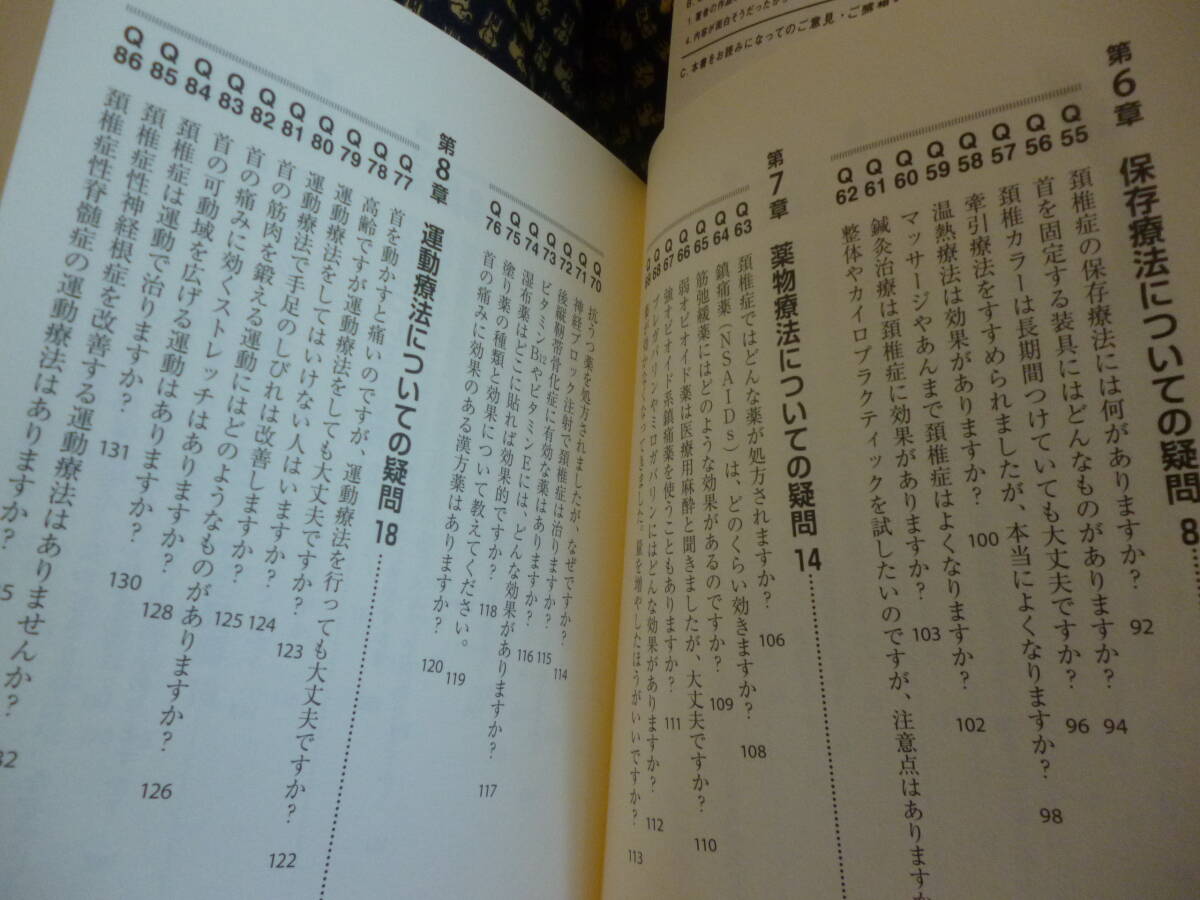 B.
1. 著者の作品
4. 内容が面白そうだったから
C. 本書をお読みになってのご意見・ご感想
第6章 保存療法についての疑問 8
Q55 頚椎症の保存療法には何がありますか? 92
Q56 首を固定する装具にはどんなものがありますか? 94
Q57 頚椎カラーは長期間つけていても大丈夫ですか? 96
Q58 牽引療法をすすめられましたが、本当によくなりますか? 98
Q59 温熱療法は効果がありますか? 100
Q60 マッサージやあんまで頚椎症はよくなりますか? 102
Q61 鍼灸治療は頚椎症に効果がありますか? 103
Q62 整体やカイロプラクティックを試したいのですが、注意点はありますか
第7章 薬物療法についての疑問 14
Q63 頚椎症ではどんな薬が処方されますか? 106
Q64 鎮痛薬(NSAIDs)は、どのくらい効きますか? 108
Q65 筋弛緩薬にはどのような効果があるのですか? 109
Q66 弱オピオイド薬は医療用麻酔と聞きましたが、大丈夫ですか? 110
Q67 強オピオイド系鎮痛薬を使うこともありますか? 111
Q68 プレガバリンやミロガバリンにはどんな効果がありますか? 112
Q69 薬が効かなくなってきました。量を増やしたほうがいいですか? 113
Q70 抗うつ薬を処方されましたが、なぜですか? 114
Q71 神経ブロック注射で頚椎症は治りますか? 115
Q72 後縦靱帯骨化症に有効な薬はありますか? 116
Q73 ビタミンB12やビタミンEには、どんな効果がありますか? 117
Q74 湿布薬はどこに貼れば効果的ですか? 118
Q75 塗り薬の種類と効果について教えてください。 119
Q76 首の痛みに効果のある漢方薬はありますか? 120
第8章 運動療法についての疑問 18
Q77 首を動かすと痛いのですが、運動療法を行っても大丈夫ですか? 122
Q78 高齢ですが運動療法をしても大丈夫ですか? 123
Q79 運動療法をしてはいけない人はいますか? 124
Q80 運動療法で手足のしびれは改善しますか? 125
Q81 首の筋肉を鍛える運動にはどのようなものがありますか? 126
Q82 首の痛みに効くストレッチはありますか? 128
Q83 首の可動域を広げる運動はありますか? 130
Q84 頚椎症は運動で治りますか? 131
Q85 頚椎症性神経根症を改善する運動療法はありませんか? 32
Q86 頚椎症性脊髄症の運動療法はありますか? 5